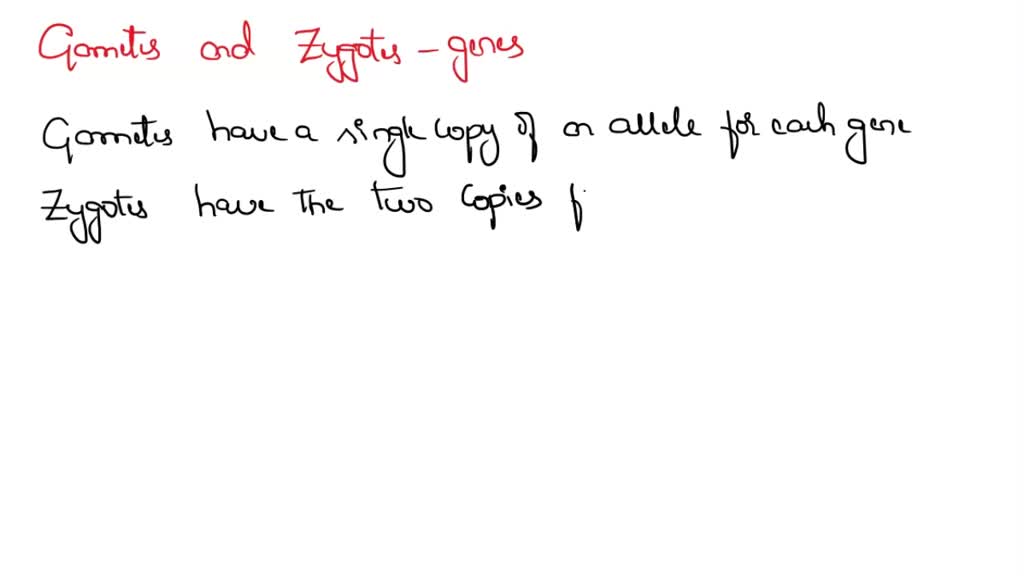 Gametes and Zygotes - genes
Gametes have a single copy of an allele for each gene
Zygotes have the two copies f